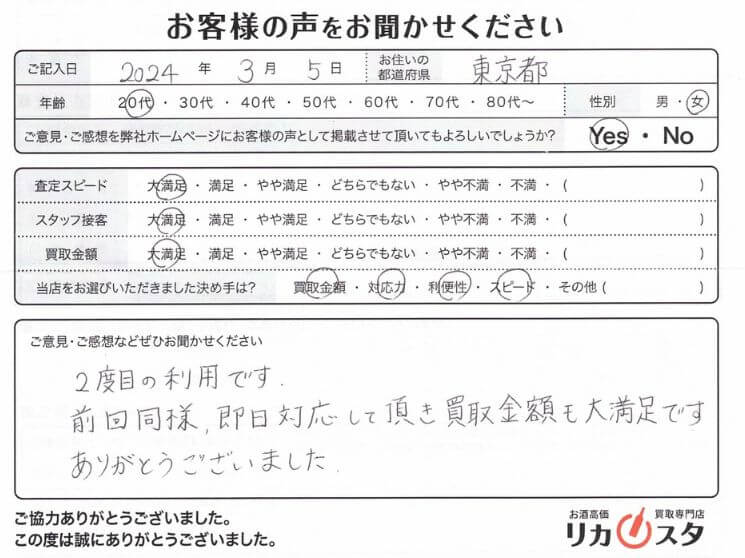 お客様の声をお聞かせください
ご記入日 2024 年 3月 5日 お住いの都道府県 東京都
年齢 20代・30代・40代・50代・60代・70代・80代〜 性別 男・女
ご意見・ご感想を弊社ホームページにお客様の声として掲載させて頂いてもよろしいでしょうか? Yes・No
査定スピード 大満足・満足・やや満足・どちらでもない・やや不満・不満・( )
スタッフ接客 大満足・満足・やや満足・どちらでもない・やや不満・不満・( )
買取金額 大満足・満足・やや満足・どちらでもない・やや不満・不満・( )
当店をお選びいただきました決め手は? 買取金額・対応力・利便性・スピード・その他( )
ご意見・ご感想などぜひお聞かせください
2度目の利用です.
前回同様,即日対応して頂き買取金額も大満足です
ありがとうございました.
ご協力ありがとうございました。
この度は誠にありがとうございました。
お酒高価 買取専門店
リカスタ